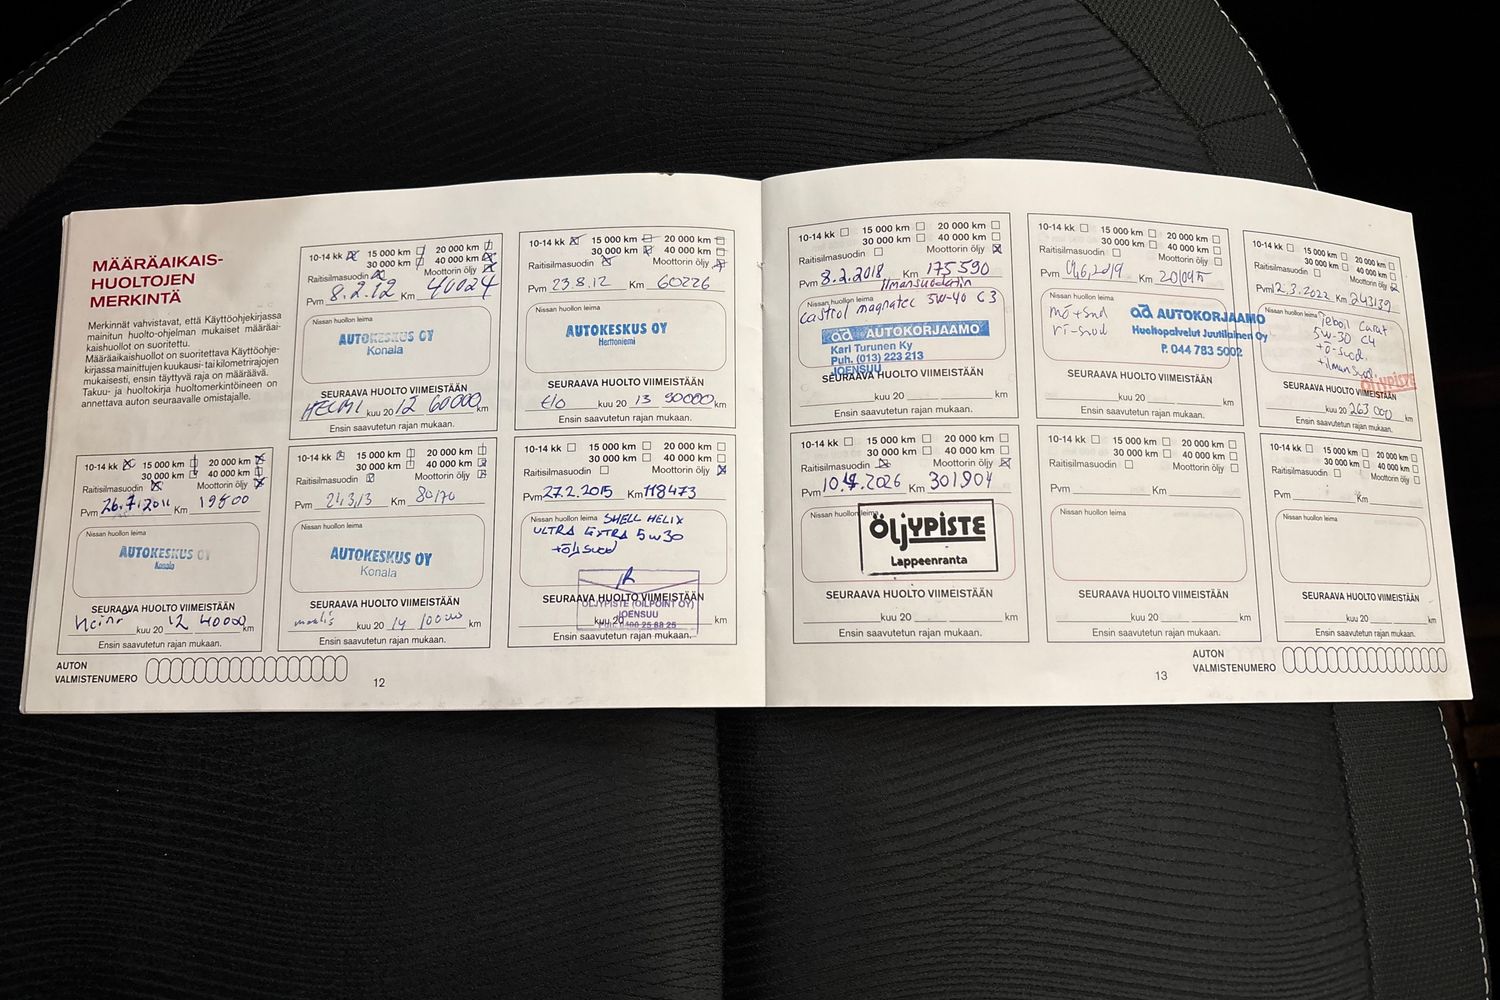 MÄÄRÄAIKAIS-
HUOLTOJEN
MERKINTÄ
Merkinnät vahvistavat, että Käyttöohjekirjassa
mainitun huolto-ohjelman mukaiset määräai-
kaishuollot on suoritettu.
Määräaikaishuollot on suoritettava Käyttöohje-
kirjassa mainittujen kuukausi- tai kilometrirajojen
mukaisesti, ensin täyttyvä raja on määräävä.
Takuu- ja huoltokirja huoltomerkintöineen on
annettava auton seuraavalle omistajalle.
10-14 kk 15 000 km 20 000 km
30 000 km 40 000 km
Raitisilmasuodin Moottorin öljy
Pvm 8.2.12 Km 40024
Nissan huollon leima
AUTOKESKUS OY
Konala
SEURAAVA HUOLTO VIIMEISTÄÄN
HELMI kuu 20 12 60000 km
Ensin saavutetun rajan mukaan.
10-14 kk 15 000 km 20 000 km
30 000 km 40 000 km
Raitisilmasuodin Moottorin öljy
Pvm 23.8.12 Km 60226
Nissan huollon leima
AUTOKESKUS OY
Herttoniemi
SEURAAVA HUOLTO VIIMEISTÄÄN
elo kuu 20 13 90000 km
Ensin saavutetun rajan mukaan.
10-14 kk 15 000 km 20 000 km
30 000 km 40 000 km
Raitisilmasuodin Moottorin öljy
Pvm 26.7.2011 Km 19800
Nissan huollon leima
AUTOKESKUS OY
Konala
SEURAAVA HUOLTO VIIMEISTÄÄN
kuu 20 12 40000 km
Ensin saavutetun rajan mukaan.
10-14 kk 15 000 km 20 000 km
30 000 km 40 000 km
Raitisilmasuodin Moottorin öljy
Pvm Km 80170
Nissan huollon leima
AUTOKESKUS OY
Konala
SEURAAVA HUOLTO VIIMEISTÄÄN
maalis kuu 20 14 100000 km
Ensin saavutetun rajan mukaan.
10-14 kk 15 000 km 20 000 km
30 000 km 40 000 km
Raitisilmasuodin Moottorin öljy
Pvm 27.2.2015 Km 118473
Nissan huollon leima SHELL HELIX
ULTRA EXTRA 5W30
+ölj.suod
SEURAAVA HUOLTO VIIMEISTÄÄN
ÖLJYPISTE (OILPOINT OY)
JOENSUU
kuu 20 km
Ensin saavutetun rajan mukaan.
AUTON
VALMISTENUMERO
12
10-14 kk 15 000 km 20 000 km
30 000 km 40 000 km
Raitisilmasuodin Moottorin öljy
Pvm 8.2.2018 Km 175590
Ilmansuodatin
Nissan huollon leima
castrol magnatec 5W-40 C3
ad AUTOKORJAAMO
Kari Turunen Ky
Puh. (013) 223 213
JOENSUU
SEURAAVA HUOLTO VIIMEISTÄÄN
kuu 20 km
Ensin saavutetun rajan mukaan.
10-14 kk 15 000 km 20 000 km
30 000 km 40 000 km
Raitisilmasuodin Moottorin öljy
Pvm Km
Nissan huollon leima
mö+suod
ri-suod
ad AUTOKORJAAMO
Huoltopalvelut Juutilainen Oy
P. 044 783 5002
SEURAAVA HUOLTO VIIMEISTÄÄN
kuu 20 km
Ensin saavutetun rajan mukaan.
10-14 kk 15 000 km 20 000 km
30 000 km 40 000 km
Raitisilmasuodin Moottorin öljy
Pvm 12.3.2022 Km 243139
Nissan huollon leima Teboil Carat
5w-30 C4
+ö-suod.
+ilmansuod.
ÖLJYPISTE
SEURAAVA HUOLTO VIIMEISTÄÄN
kuu 20 263 000 km
Ensin saavutetun rajan mukaan.
10-14 kk 15 000 km 20 000 km
30 000 km 40 000 km
Raitisilmasuodin Moottorin öljy
Pvm Km 301904
Nissan huollon leima
ÖLJYPISTE
Lappeenranta
SEURAAVA HUOLTO VIIMEISTÄÄN
kuu 20 km
Ensin saavutetun rajan mukaan.
10-14 kk 15 000 km 20 000 km
30 000 km 40 000 km
Raitisilmasuodin Moottorin öljy
Pvm Km
Nissan huollon leima
SEURAAVA HUOLTO VIIMEISTÄÄN
kuu 20 km
Ensin saavutetun rajan mukaan.
10-14 kk 15 000 km 20 000 km
30 000 km 40 000 km
Raitisilmasuodin Moottorin öljy
Pvm Km
Nissan huollon leima
SEURAAVA HUOLTO VIIMEISTÄÄN
kuu 20 km
Ensin saavutetun rajan mukaan.
AUTON
VALMISTENUMERO
13